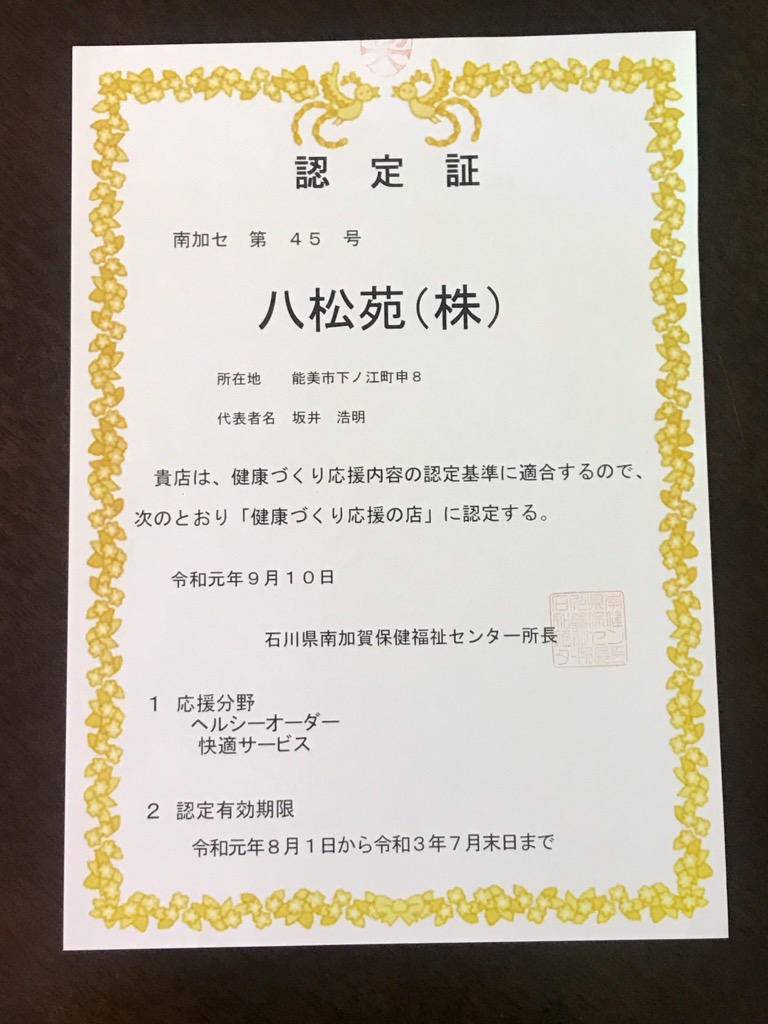 認定証
南加セ 第 ４５ 号
八松苑（株）
所在地 能美市下ノ江町申８
代表者名 坂井 浩明
貴店は、健康づくり応援内容の認定基準に適合するので、
次のとおり「健康づくり応援の店」に認定する。
令和元年９月１０日
石川県南加賀保健福祉センター所長
１ 応援分野
ヘルシーオーダー
快適サービス
２ 認定有効期限
令和元年８月１日から令和３年７月末日まで